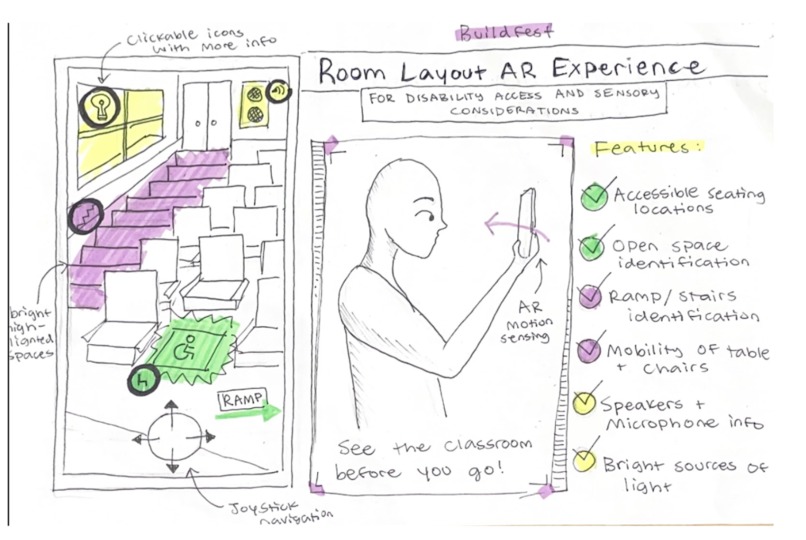 Buildfest
Room Layout AR Experience
FOR DISABILITY ACCESS AND SENSORY
CONSIDERATIONS
Clickable icons
with more info
bright
high-
lighted
spaces
RAMP
Joystick
navigation
AR
Motion
sensing
See the classroom
before you go!
Features:
Accessible seating
locations
Open space
identification
Ramp/stairs
identification
Mobility of table
+ chairs
Speakers +
Microphone info
Bright sources of
light